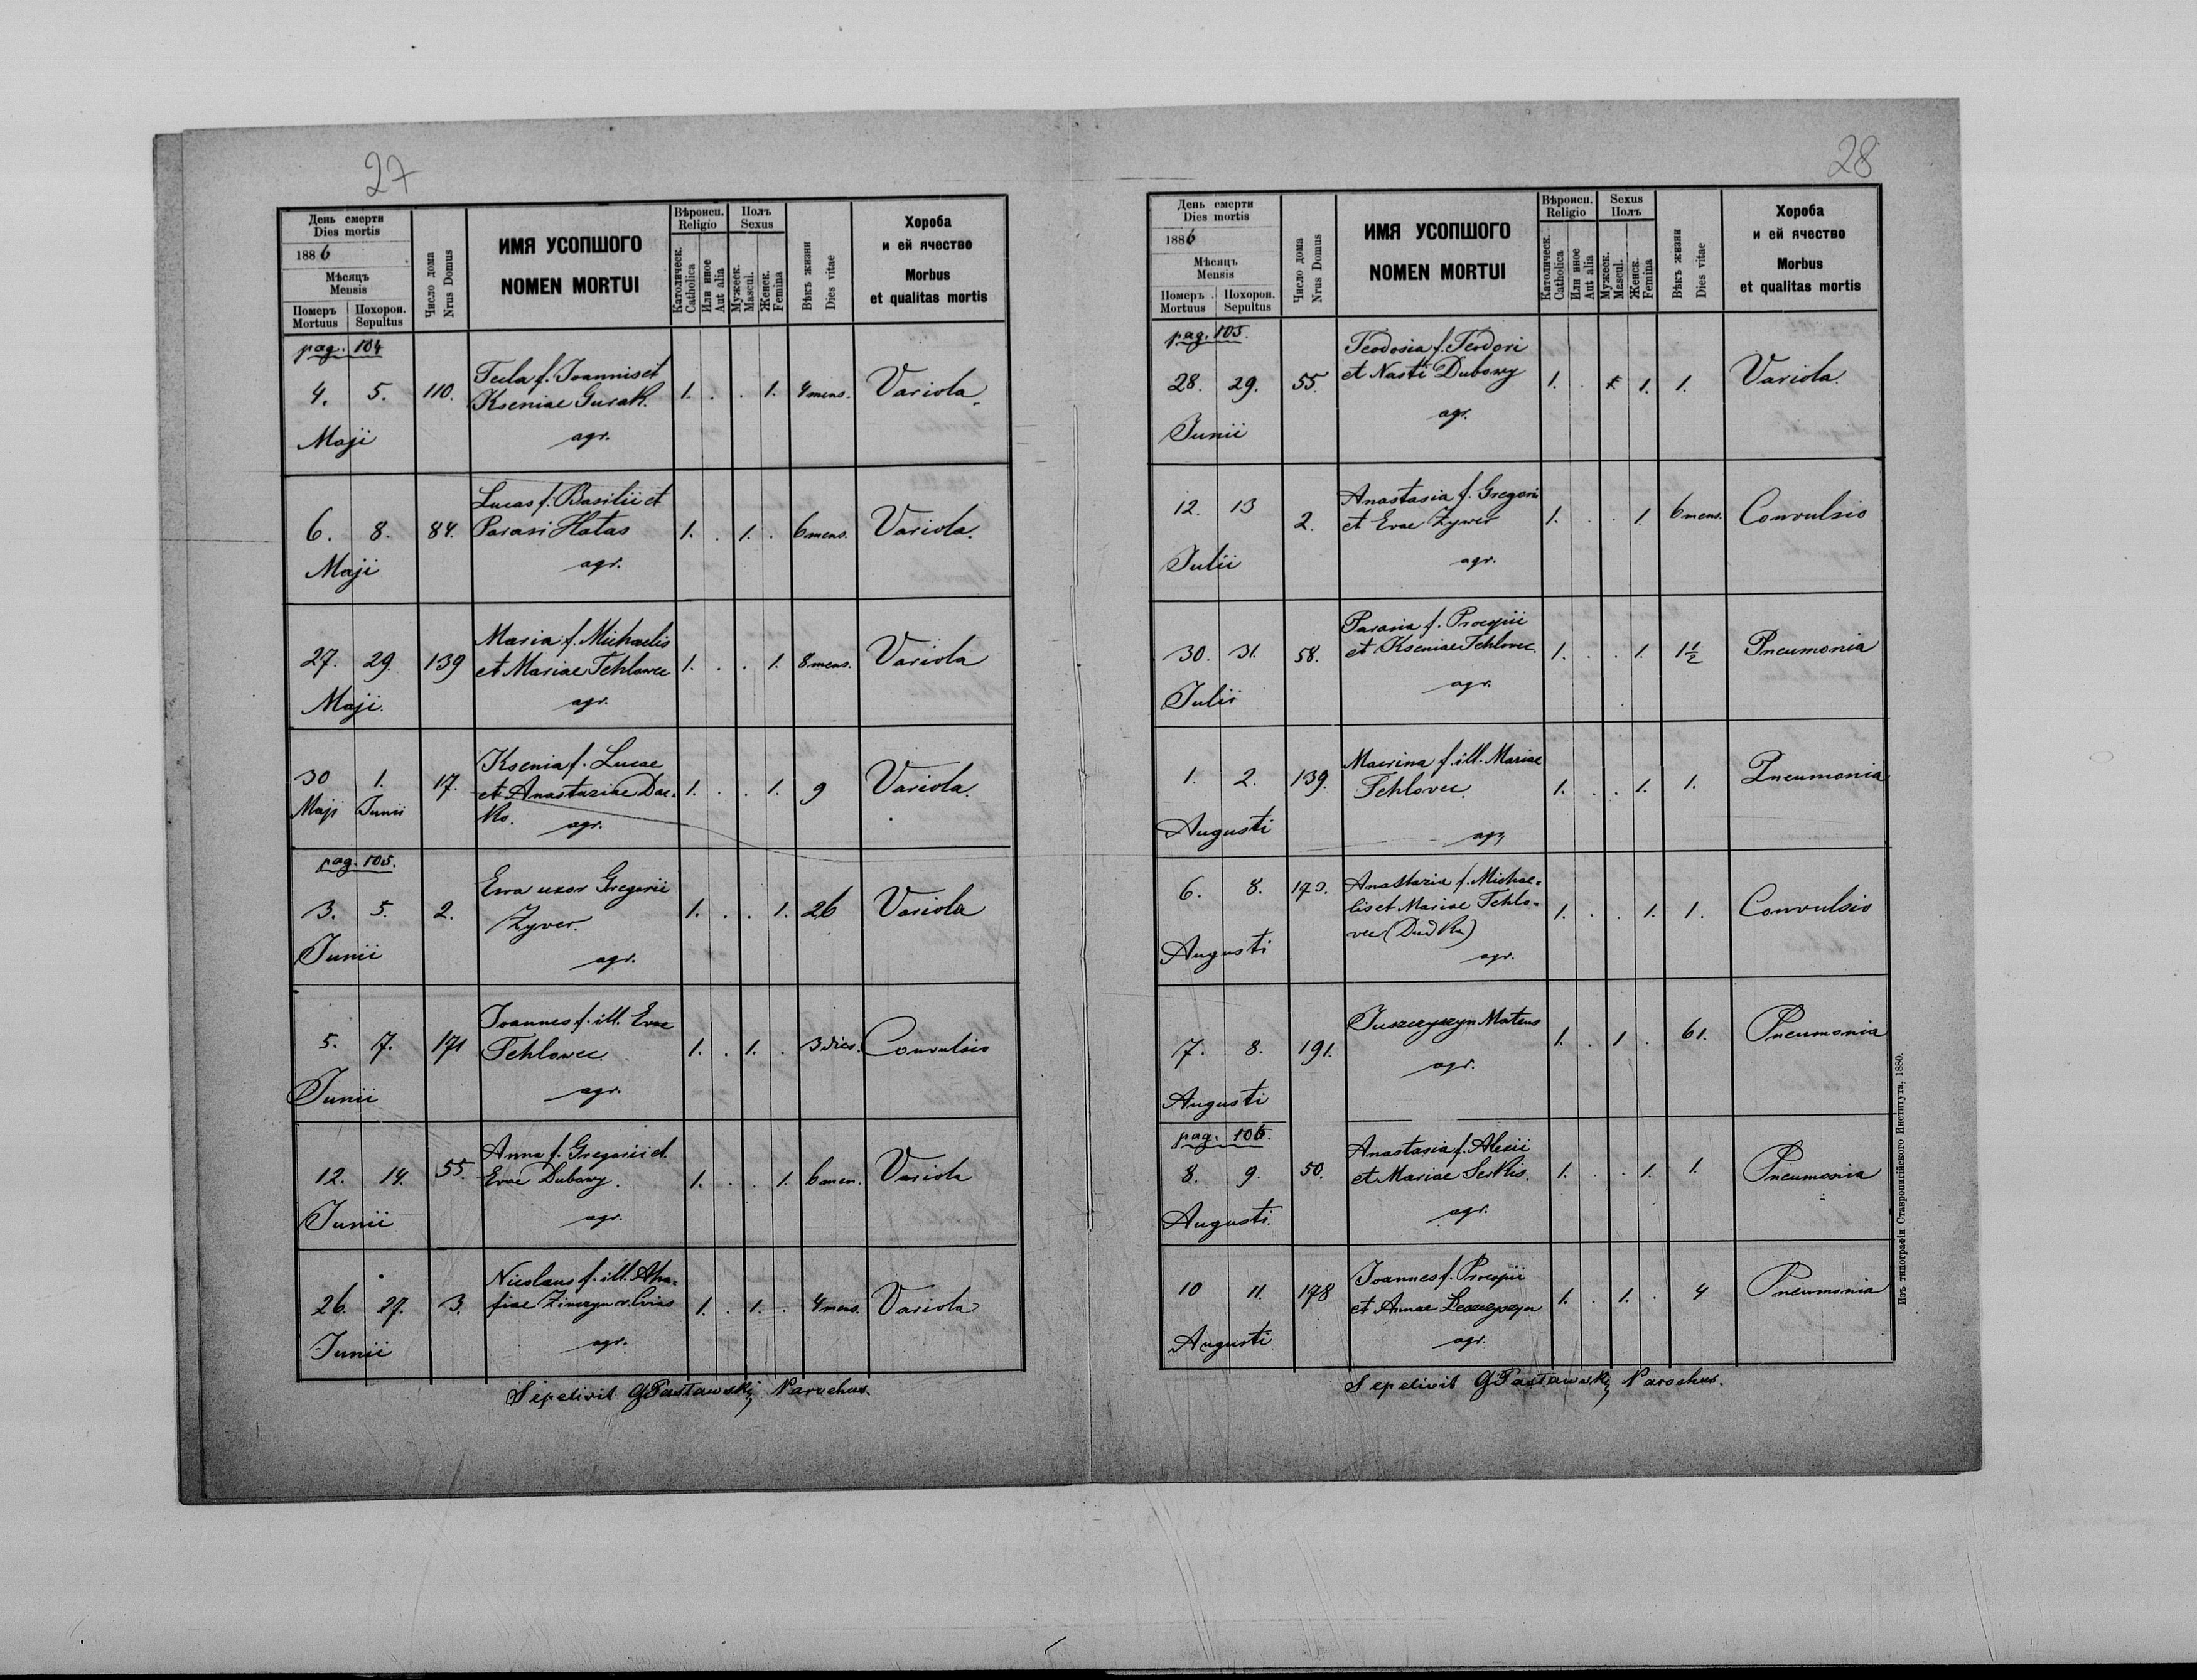 27
День смерти
Dies mortis
1886
Мѣсяцъ
Mensis
Померъ
Mortuus
Похорон.
Sepultus
Число дома
Nrus Domus
ИМЯ УСОПШОГО
NOMEN MORTUI
Вѣроисп.
Religio
Католическ.
Catholica
Или иное
Aut alia
Полъ
Sexus
Мужеск.
Mascul.
Женск.
Femina
Вѣкъ жизни
Dies vitae
Хороба
и ей ячество
Morbus
et qualitas mortis
pag. 104
Tecla f. Joannis et
4. 5. 110. Kseniae Gurak. 1. . . 1. 4 mens. Variola.
Maji agr.
Lucas f. Basilii et
6. 8. 84. Parasi Hatas 1. . 1. . 6 mens. Variola.
Maji agr.
Maria f. Michaelis
27. 29. 139 et Mariae Tchlowec 1. . . 1. 8 mens. Variola
Maji. agr.
Ksenia f. Lucae
30 1. 17. et Anastaziae Dac- 1. . . 1. 9 Variola.
Maji Junii ko. agr.
pag. 105.
Ewa uxor Gregorii
3. 5. 2. Zywer. 1. . . 1. 26 Variola
Junii agr.
Joannes f. ill. Evae
5. 7. 171 Tchlowec 1. . 1. . 3 dies. Convulsio
Junii agr.
Anna f. Gregorii et
12. 14. 55. Evae Dubowy. 1. . . 1. 6 men. Variola
Junii agr.
Nicolaus f. ill. Aha-
26. 27. 3. fiae 1. . 1. . 4 mens. Variola
Junii agr.
Sepelivit G Pastawskij Parochus.
28
День смерти
Dies mortis
1886
Мѣсяцъ
Mensis
Померъ
Mortuus
Похорон.
Sepultus
Число дома
Nrus Domus
ИМЯ УСОПШОГО
NOMEN MORTUI
Вѣроисп.
Religio
Католическ.
Catholica
Или иное
Aut alia
Sexus
Полъ
Мужеск.
Mascul.
Женск.
Femina
Вѣкъ жизни
Dies vitae
Хороба
и ей ячество
Morbus
et qualitas mortis
pag. 105.
Teodosia f. Teodori
28. 29. 55. et Nasti Dubowy 1. . 1. 1. Variola.
Junii agr.
Anastasia f. Gregorii
12. 13 2. et Evae Zywer 1. . . 1. 6 mens. Convulsio
Julii agr.
Parasia f. Procopii
30. 31. 58. et Kseniae Tchlovec. 1. . . 1. 1 1/2 Pneumonia
Julii agr.
Mairina f. ill. Mariae
1. 2. 139. Tchlovec. 1. . . 1. 1. Pneumonia
Augusti agr.
6. 8. 173. Anastazia f. Michae-
lis et Mariae Tchlo- 1. . . 1. 1. Convulsio
vec (Dudka)
Augusti agr.
Juszczyszyn Mateus
7. 8. 191. 1. . 1 . 61. Pneumonia
agr.
Augusti
pag. 106.
Anastasia f. Alexii
8. 9. 50. et Mariae Serkis. 1. . . 1. 1. Pneumonia
Augusti. agr.
Joannes f. Procopii
10 11. 178 et Annae Leszczyszyn 1. . 1. . 4 Pneumonia
Augusti agr.
Sepelivit G Pastawskij Parochus.
Изъ типографіи Ставропигійского Института, 1880.